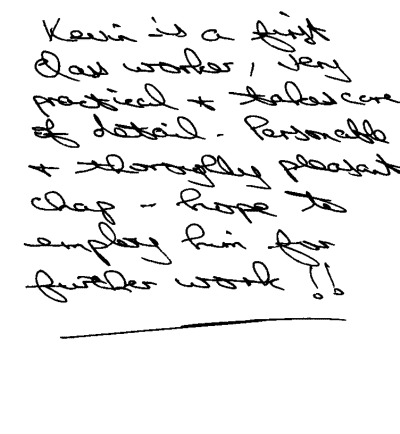 Kevin is a first
class worker, very
practical + takes care
of detail. Personable
+ thoroughly pleasant
chap - hope to
employ him for
further work !!